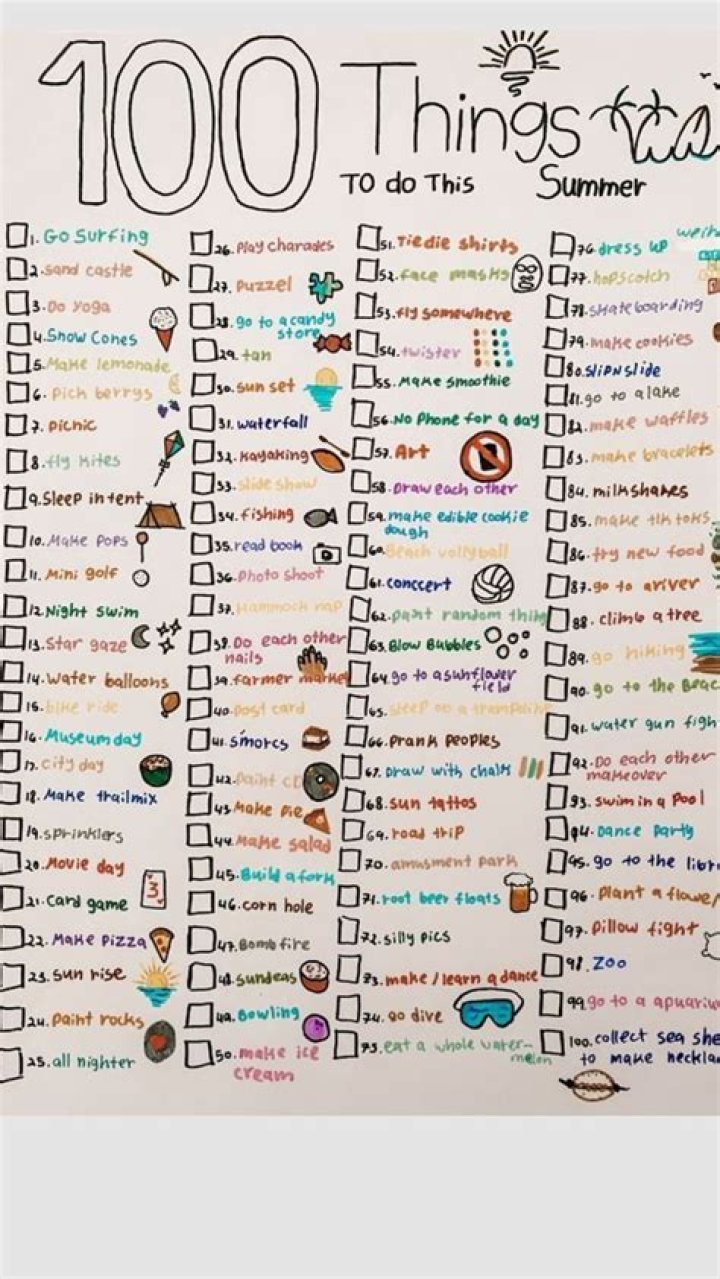 100 Things
To do This Summer
1. Go Surfing
2. sand castle
3. Do yoga
4. Snow Cones
5. Make lemonade
6. Pick berrys
7. Picnic
8. fly kites
9. Sleep in tent
10. Make Pops
11. Mini golf
12. Night swim
13. Star gaze
14. water balloons
15. bike ride
16. Museum day
17. city day
18. Make trailmix
19. sprinklers
20. Movie day
21. Card game
3
22. Make pizza
23. sun rise
24. Paint rocks
25. all nighter
26. Play charades
27. Puzzel
28. go to a candy
store
29. tan
30. sun set
31. waterfall
32. Kayaking
33. slide show
34. fishing
35. read book
36. Photo shoot
37. Hammock nap
38. Do each other
nails
39. farmer market
40. post card
41. s'mores
42. Paint CD
43. Make Pie
44. Make salad
45. Build a fork
46. corn hole
47. Bomb fire
48. sundeas
49. Bowling
50. make ice
cream
51. Tie die shirts
52. face masks
53. fly somewhere
54. twister
55. Make smoothie
56. No Phone for a day
57. Art
58. Draw each other
59. make edible cookie
dough
60. Beach vollyball
61. conccert
62. paint random thing
63. Blow Bubbles
64. go to a sunflower
field
65. sleep on a trampoline
66. Prank Peoples
67. Draw with chalk
68. sun tattos
69. road trip
70. amusment park
71. root beer floats
72. silly pics
73. make/learn a dance
74. Go dive
75. eat a whole water-
melon
76. dress up
77. hopscotch
78. skateboarding
79. make cookies
80. Slip N slide
81. go to a lake
82. make waffles
83. make bracelets
84. milkshakes
85. make tik toks
86. try new food
87. go to a river
88. climb a tree
89. go hiking
90. go to the Beac
91. water gun figh
92. Do each other
makeover
93. swim in a pool
94. Dance Party
95. go to the libr
96. Plant a flower
97. Pillow fight
98. Zoo
99. go to a apuariu
100. collect sea she
to make necklac